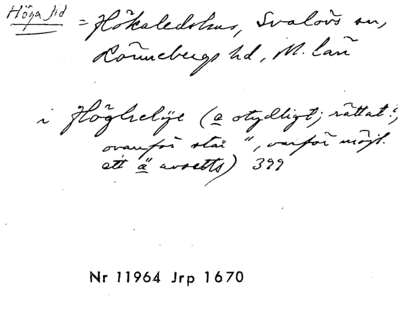 Höga hd = Hökaledshus, Svalövs sn,
Rönnebergs hd, M. län
i Höghelije (a otydligt; rättat?,
ovanför står ", varför möjl.
ett ä avsetts) 399
Nr 11964 Jrp 1670